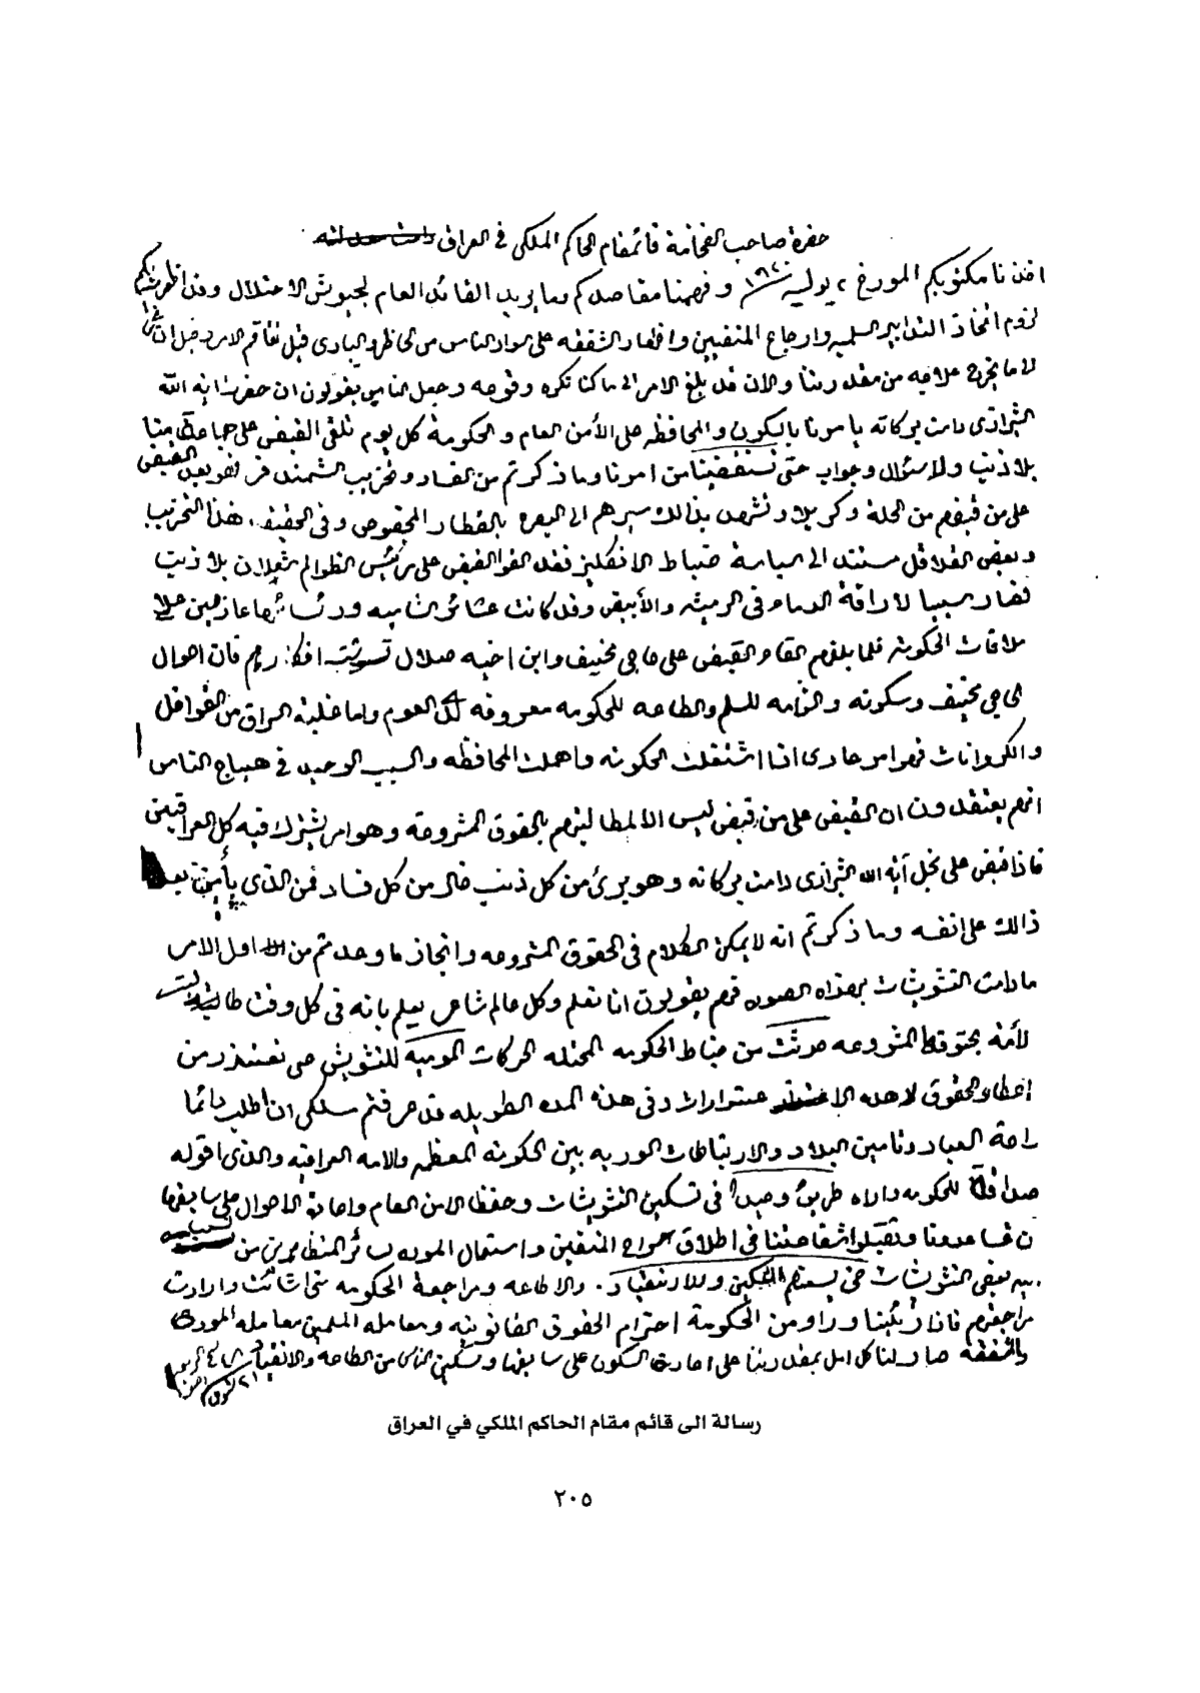 حضرة صاحب الفخامة قائمقام الحاكم الملكي في العراق
اخذنا مكتوبكم المورخ ٢ يوليه ١٩٢٠ وفهمنا مقاصدكم وما يريد القائد العام لجيوش الاحتلال وقد اظهرنا لكم
لزوم اتخاذ التدابير السلميه وارجاع المنفيين واظهار الشفقه على سواد الناس من الحاظر والبادى قبل تفاقم الامر وقبل ان
لا ما يخرج علاجه من مقدرتنا والان قد بلغ الامر الى ما كنا نكره وقوعه وجعل الناس يقولون ان حضرت اية الله
الشيرازى دامت بركاته يامرنا بالسكون والمحافظه على الأمن العام والحكومة كل يوم تلقى القبض على جماعة منا
بلا ذنب ولا سئوال وجواب حتى وما ذكرتم من الفساد وتخريب الشمندفر فهو بعد القبض
على من قبضهم من الحلة وكربلا وتشهد بذالك سيرهم الى البصرة بالقطار المخصوص وفى الحقيقه هذا التخريب
وبعض القلاقل مستند الى سياسة ضباط الانكليز فقد القوا القبض على رئيس الظوالم شعلان بلا ذنب
فصار سببا لاراقة الدماء فى الرميثه والأبيض وقد كانت عشائر الشاميه ورئسائها عازمين على
ملاقات الحكومة فلما بلغهم القاء القبض على حاجي مخيف وابن اخيه صلال تشوشت افكارهم فان احوال
الحاجي مخيف وسكونه والتزامه للسلم والطاعه للحكومه معروفه لدى العموم واما غلبة السراق من القوافل
والكروانات فهو امر عادى اذا اشتغلت الحكومة واهملت المحافظه والسبب الوحيد في هياج الناس
انهم يعتقدون ان القبض على من قبض ليس الا لمطالبتهم بالحقوق المشروعة وهو امر يشترك فيه كل العراقيين
فاذا قبض على نجل آية الله الشيرازى دامت بركاته وهو برئ من كل ذنب خال من كل فساد فمن الذى يأمن بعد
ذالك على نفسه وما ذكرتم انه لا يمكن الكلام فى الحقوق المشروعه وانجاز ما وعدتم من اول الامر
مادامت التشويشات بهذه الصوره فهم يقولون انا نعلم وكل عالم شاعر يعلم بانه فى كل وقت طالبت
الأمة بحقوقها المشروعه صدرت من ضباط الحكومه المحتله الحركات الموجبه للتشويش حتى تعتذر من
اعطاء الحقوق لاهله وفى هذه المده الطويله قد عرفتم سلكى انا اطلب دائما
راحة العباد وتامين البلاد والارتباطات الوديه بين الحكومة المعظمه والامه العراقيه والذى اقوله
صداقة للحكومه واراه طريقا وحيدا فى تسكين التشويشات وحفظ الامن العام واعادة الاحوال على سابقها
ان تساعدونا وتقبلوا شفاعتنا فى اطلاق سراح المنفيين واستعمال الموده لسائر المتظاهرين من
بعض التشويشات حتى يسعهم التمكين والانقياد. والاطاعه ومراجعة الحكومه متى شائت وارادت
مراجعتهم فاذا وراو من الحكومة احترام الحقوق القانونيه ومعامله المسلمين معامله المودة
والشفقه صار لنا كل امل بمقدرتنا على اعادة السكون على سابقها وتسكين الناس من الطاعه والانقياد
رسالة الى قائم مقام الحاكم الملكي في العراق
٢٠٥